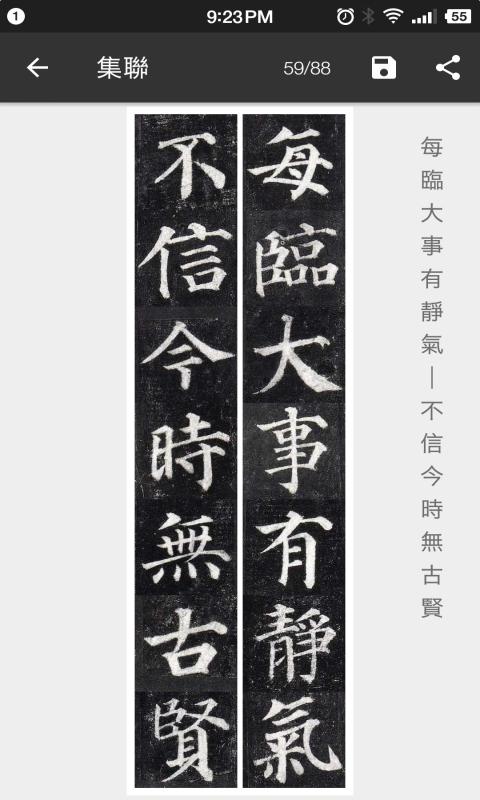 1 9:23PM 55
集聯 59/88
每臨大事有靜氣
不信今時無古賢
每臨大事有靜氣—不信今時無古賢